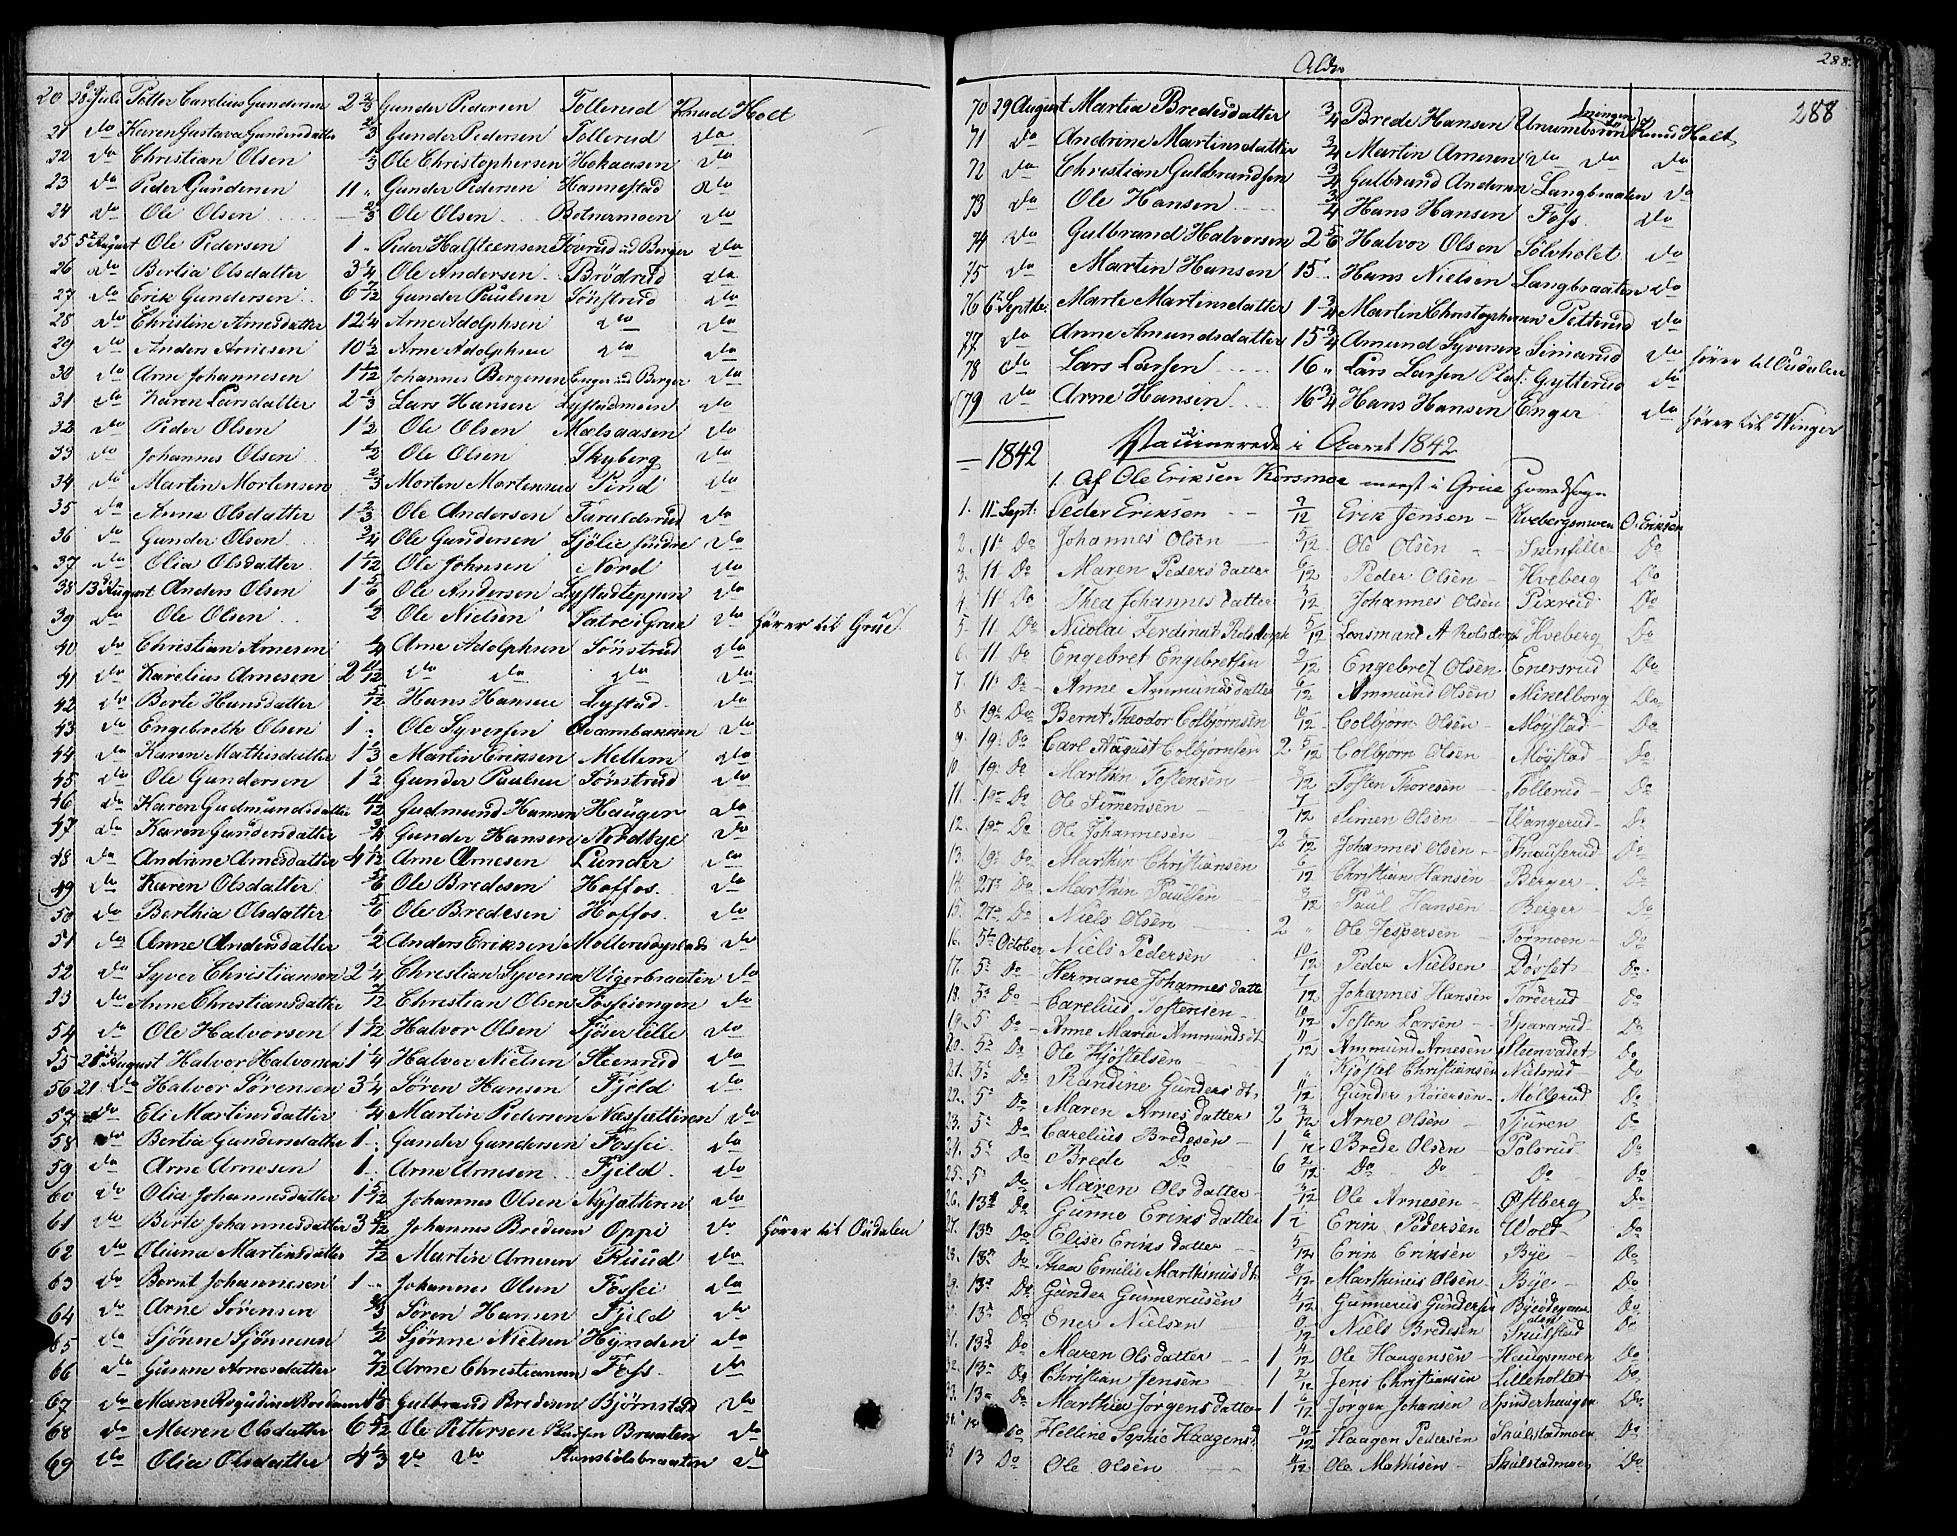 20 28de Juli Petter Carelius Gundersen 2 2/3 Gunder Pedersen Tollerud Knud Holt
21 do Karen Gustava Gundersdatter 2/3 Gunder Pedersen Tollerud do
22 do Christian Olsen 1/3 Ole Christophersen Hokaasen do
23 do Peder Gundersen 11 " Gunder Pedersen Hammestad do
24 do Ole Olsen 2/3 Ole Olsen Botnermoen do
25 5te August Ole Pedersen 1 " Peder Halsteensen Tovrud ud Berger do
26 do Bertia Olsdatter 3 1/4 Ole Andersen Brödrud do
27 do Erik Gundersen 6 7/12 Gunder Paulsen Sönstrud do
28 do Christine Arnesdatter 12 1/4 Arne Adolphsen do do
29 do Anders Arnesen 10 1/2 Arne Adolphsen do do
30 do Arne Johannesen 1 1/12 Johannes Bergersen Enger ud Berger do
31 do Karen Larsdatter 2 1/3 Lars Hansen Lystadmoen do
32 do Peder Olsen 1 1/2 Ole Olsen Mælsaasen do
33 do Johannes Olsen 1/2 Ole Olsen Skyberg do
34 do Martin Mortensen 2/3 Morten Mortensen Pind do
35 do Anne Olsdatter 1 2/3 Ole Andersen Taraldsrud do
36 do Gunder Olsen 3/4 Ole Gundersen Sjölie söndre do
37 do Olia Olsdatter 1 1/12 Ole Johnsen Nord do
38 13de August Anders Olsen 1 5/6 Ole Andersen Lystadteppen do
39 do Ole Olsen 1/2 Ole Nielsen Sætre i Grue do hörer til Grue
40 do Christian Arnesen 1/4 Arne Adolphsen Sönstrud do
41 do Karelius Arnesen 2 11/12 do do do do
42 do Berte Hansdatter 5/12 Hans Hansen Lystad do
43 do Engebreth Olsen 1 " Ole Syversen Qvambakken do
44 do Karen Mathisdatter 1 1/3 Martin Eriksen Mellem do
45 do Ole Gundersen 1 1/2 Gunder Paulsen Sönstrud do
46 do Karen Gudmundsdatter 11/12 Gudmund Hansen Hauger do
47 do Karen Gundersdatter 3/4 Gunder Hansen Nordbye do
48 do Andrine Arnesdatter 4 1/12 Arne Arnesen Lunder do
49 do Karen Olsdatter 5/6 Ole Bredesen Hoffos do
50 do Berthia Olsdatter 5/6 Ole Bredesen Hoffos do
51 do Anne Andersdatter 1/2 Anders Eriksen do
52 do Syver Christiansen 2 1/4 Christian Syversen Vigerbraaten do
53 do Anne Christiansdatter 7/12 Christian Olsen Fosseiengen do
54 do Ole Halvorsen 1 1/12 Halvor Olsen Kjöser lille do
55 21de August Halvor Halvorsen 1 1/4 Halvor Nielsen Steenrud do
56 21 do Halvor Sörensen 3 1/4 Sören Hansen Fjeld do
57 do Eli Martinsdatter 1/4 Martin Pedersen Næsfælteren do
58 do Bertia Gundersdatter 1 " Gunder Gundersen Fossei do
59 do Arne Arnesen 1 " Arne Arnesen Fjeld do
60 do Olia Johannesdatter 1 5/12 Johannes Olsen Næsfælteren do
61 do Berte Johannesdatter 3 5/12 Johannes Bredesen Oppi do hörer til Oudalen
62 do Oliana Martinsdatter 7/12 Martin Arnesen Ruud do
63 do Bernt Johannesen 1 " Johannes Olsen Fossei do
64 do Arne Sörensen 2/3 Sören Hansen Fjeld do
65 do Sjönne Sjönnesen 1/2 Sjönne Nielsen Hynden do
66 do Gunne Arnesdatter 7/12 Arne Christiansen Foss do
67 do Maren Gulbrand Bredesen Björnstad do
68 do Maren Olsdatter 6 5/12 Ole Pettersen Braaten do
69 do Olia Olsdatter 4 1/3 do do do
Alder
288
288
70 29 August Martia Bredesdatter 3/4 Brede Hansen Knud Holt
71 do Andrine Martinsdatter 3/4 Martin Arnesen do do do
72 do Christian Gulbrandsen 3/4 Gulbrand Andersen Langbraaten do
73 do Ole Hansen 3/4 Hans Hansen Foss do
74 do Gulbrand Halvorsen 2 5/6 Halvor Olsen Sölvholet do
75 do Martin Hansen 15 " Hans Nielsen Langbraaten do
76 6te Septbr. Marte Martinsdatter 1 3/4 Martin Christophersen Petterud do
77 do Anne Amundsdatter 15 3/4 Amund Syversen Simarud do
78 do Lars Larsen 16 " Lars Larsen Gytterud do hörer til Oudalen
79 do Arne Hansen 16 3/4 Hans Hansen Enger do hörer til Winger
1842 Vaccinerede i Aaret 1842
1. Af Ole Eriksen Korsmoe meest i Grue Hovedsogn
1. 11te Sept. Peder Eriksen 9/12 Erik Jensen Hvebergsmoen O. Eriksen
2. 11te Do Johannes Olsen 5/12 Ole Olsen Skinfille Do
3. 11 Do Maren Peders datter 6/12 Peder Olsen Hveberg Do
4. 11te Do Thea Johannes datter 3/12 Johannes Olsen Pixrud Do
5. 11 Do Nicolai Ferdinat Rolsdorph 5/12 Lensmand A Rolsdorph Hveberg Do
6. 11 Do Engebret Engebretsen 9/12 Engebret Olsen Enersrud Do
7. 11te Do Anne Ammunds datter 6/12 Ammund Olsen Mikelborg Do
8. 19de Do Bernt Theodor Colbjørnsen 10/12 Colbjørn Olsen Møystad Do
9. 19de Do Carl August Colbjørnsen 2 5/12 Colbjørn Olsen Møystad Do
10. 19de Do Marthin Tostensen 8/12 Tosten Thoresen Tollerud Do
11. 19de Do Ole Simensen 7/12 Simen Olsen Wangerud Do
12. 19de Do Ole Johannesen 2 6/12 Johannes Olsen Knauserud Do
13. 19de Do Marthin Christiansen 6/12 Christian Hansen Berger Do
14. 27de Do Marthin Paulsen 9/12 Paul Hansen Berger Do
15. 27de Do Niels Olsen 2 " Ole Jespersen Tørmoen Do
16. 5te October Niels Pedersen 10/12 Peder Nielsen Dösset Do
17. 5te Do Hermane Johannes datter 7/12 Johannes Hansen Torderud Do
18. 5te Do Carelius Tostensen 10/12 Tosten Larsen Spararud Do
19. 5 Do Anne Marie Ammunds dt. 11/12 Ammund Arnesen Steenvadet Do
20. 5te Do Ole Kjøstelsen 1 " Kjøstel Christiansen Nilsrud Do
21. 5te Do Randine Gunders dt. 11/12 Gunder Reiersen Møllerud Do
22. 5te Do Maren Arnes datter 2 3/12 Arne Olsen Tjuren Do
23. 5te Do Carelius Bredesen 1 6/12 Brede Olsen Polsrud Do
24. 5te Do Brede Do 6 2/12 Do Do Do Do
25. 5 Do Maren Ols datter 3/12 Ole Arnesen Østberg Do
26. 13de Do Gunne Eriks datter 1 1/2 Erik Pedersen Wold Do
27. 13de Do Elise Eriks datter 5/12 Erik Eriksen Bye Do
28. 13de Do Thea Emilie Marthinius dt. 9/12 Marthinius Olsen Bye Do
29. 13de Do Gunder Gunneriusen 4/12 Gunnerius Gundersen Byeødegaard Do
30. 13de Do Ener Nielsen 9/12 Niels Bredesen Skulstad Do
31. 13de Do Maren Ols datter 1 4/12 Ole Haagensen Haugsmoen Do
32. 13de Do Christian Jensen 1 2/12 Jens Christiansen Lilleholtet Do
33. 13de Do Marthia Jørgens datter 1 6/12 Jørgen Johansen Spinderhuusgen Do
34. Do Helline Sophie Haagens 9/12 Haagen Pedersen Skulstadmoen Do
35 13 Do Ole Olsen 11/12 Ole Mathisen Skulstadmoen Do